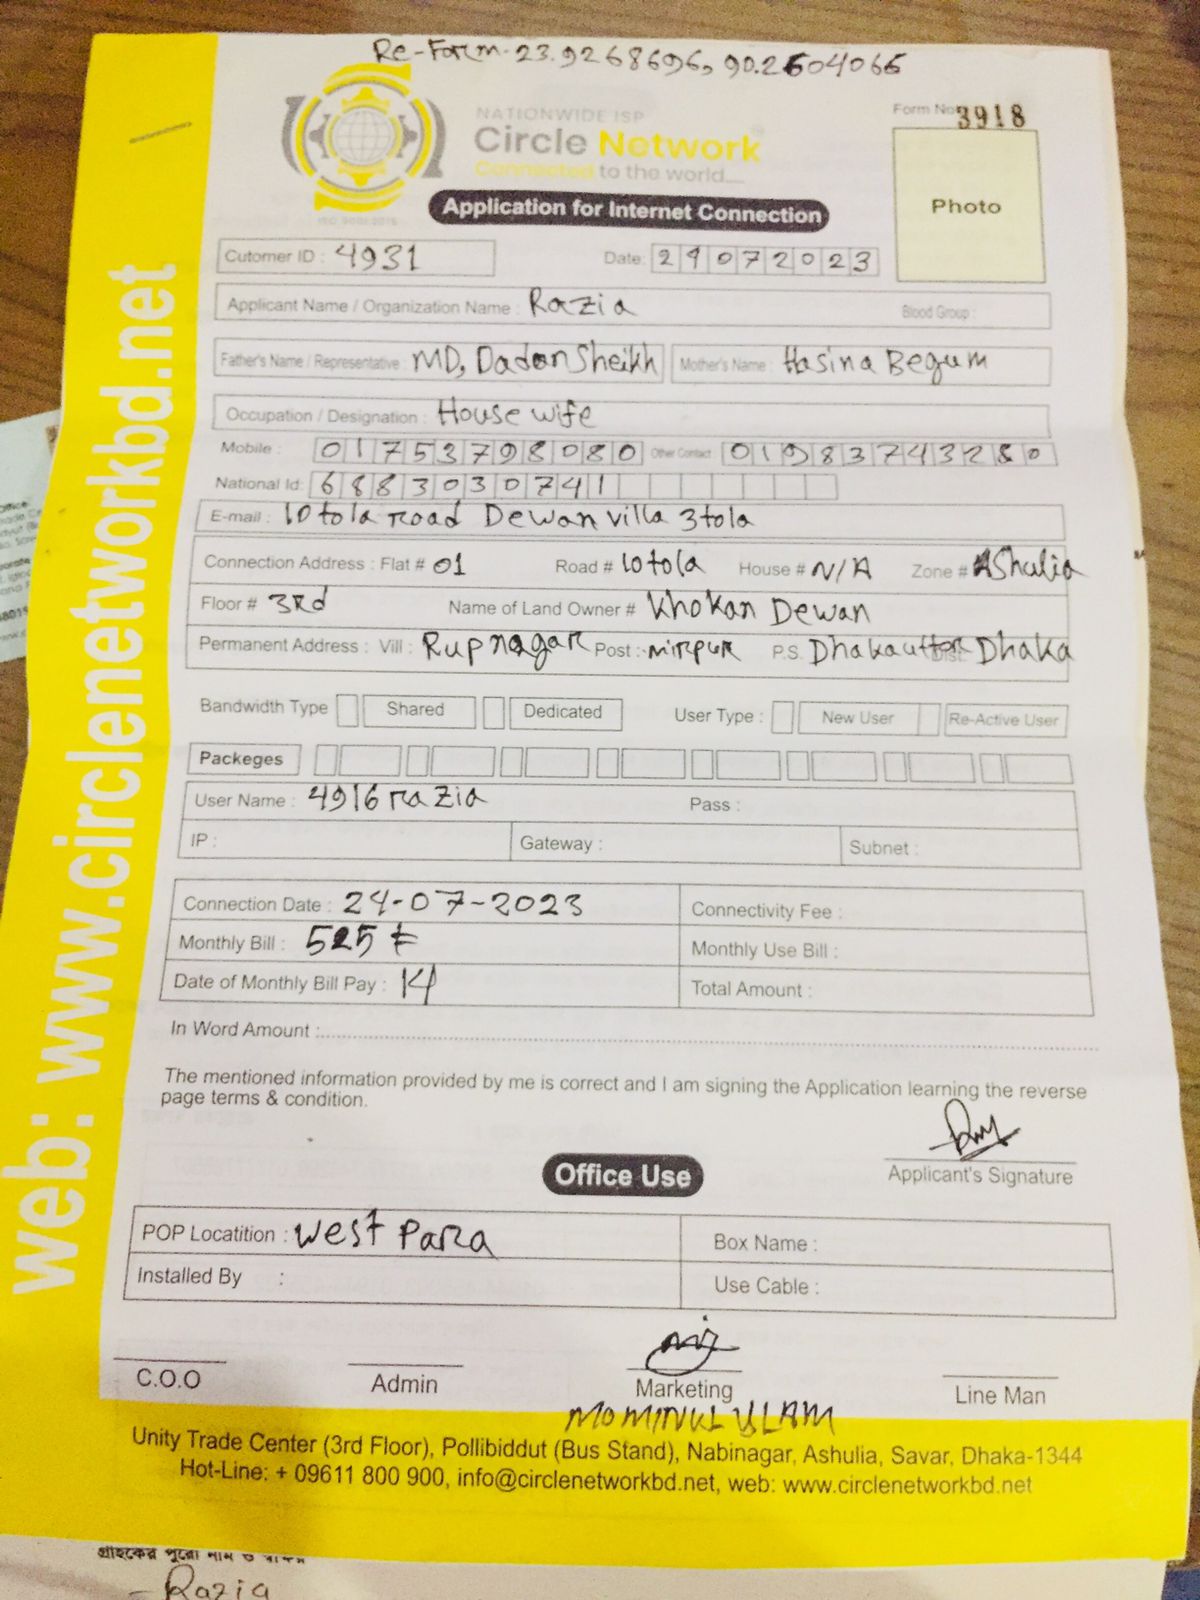 Re-Form-23.9268696, 90.2504066
NATIONWIDE ISP
Circle Network
Connected to the world__
ISO 9001:2015
Form No 3918
Photo
Application for Internet Connection
Cutomer ID : 4931 Date: 24072023
Applicant Name / Organization Name : Razia Blood Group :
Father's Name / Representative : MD, Dadan Sheikh Mother's Name : Hasina Begum
Occupation / Designation : House wife
Mobile : 01753798080 Other Contact 01983743280
National Id: 6883030741
E-mail : 10 tola Road Dewan villa 3 tola
Connection Address : Flat # 01 Road # 10 tola House # N/A Zone # AShulia
Floor # 3Rd Name of Land Owner # Khokan Dewan
Permanent Address : Vill : Rupnagar Post : mirpur P.S. Dhaka uttor Dist. Dhaka
Bandwidth Type Shared Dedicated User Type : New User Re-Active User
Packeges
User Name : 4916 razia Pass :
IP : Gateway : Subnet :
Connection Date : 24-07-2023 Connectivity Fee :
Monthly Bill : 525 ৳ Monthly Use Bill :
Date of Monthly Bill Pay : 14 Total Amount :
In Word Amount :
The mentioned information provided by me is correct and I am signing the Application learning the reverse
page terms & condition.
Applicant's Signature
Office Use
POP Locatition : West Para Box Name :
Installed By : Use Cable :
C.O.O Admin Marketing Line Man
MOMINUL ISLAM
Unity Trade Center (3rd Floor), Pollibiddut (Bus Stand), Nabinagar, Ashulia, Savar, Dhaka-1344
Hot-Line: + 09611 800 900, info@circlenetworkbd.net, web: www.circlenetworkbd.net
web: www.circlenetworkbd.net
গ্রাহকের পুরো নাম ও
- Razia